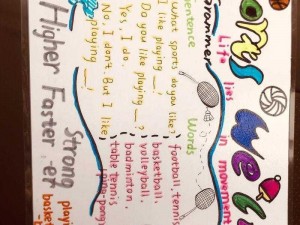 Life lies in movement
Grammer
Sentence
What sports do you like?
I like playing __!
Do you like playing __?
Yes, I do.
No, I don't. But I like
playing __!
Words
football, tennis
basketball,
volleyball,
badminton,
table tennis
ping-pong
Higher Faster
Strong
playing
basket